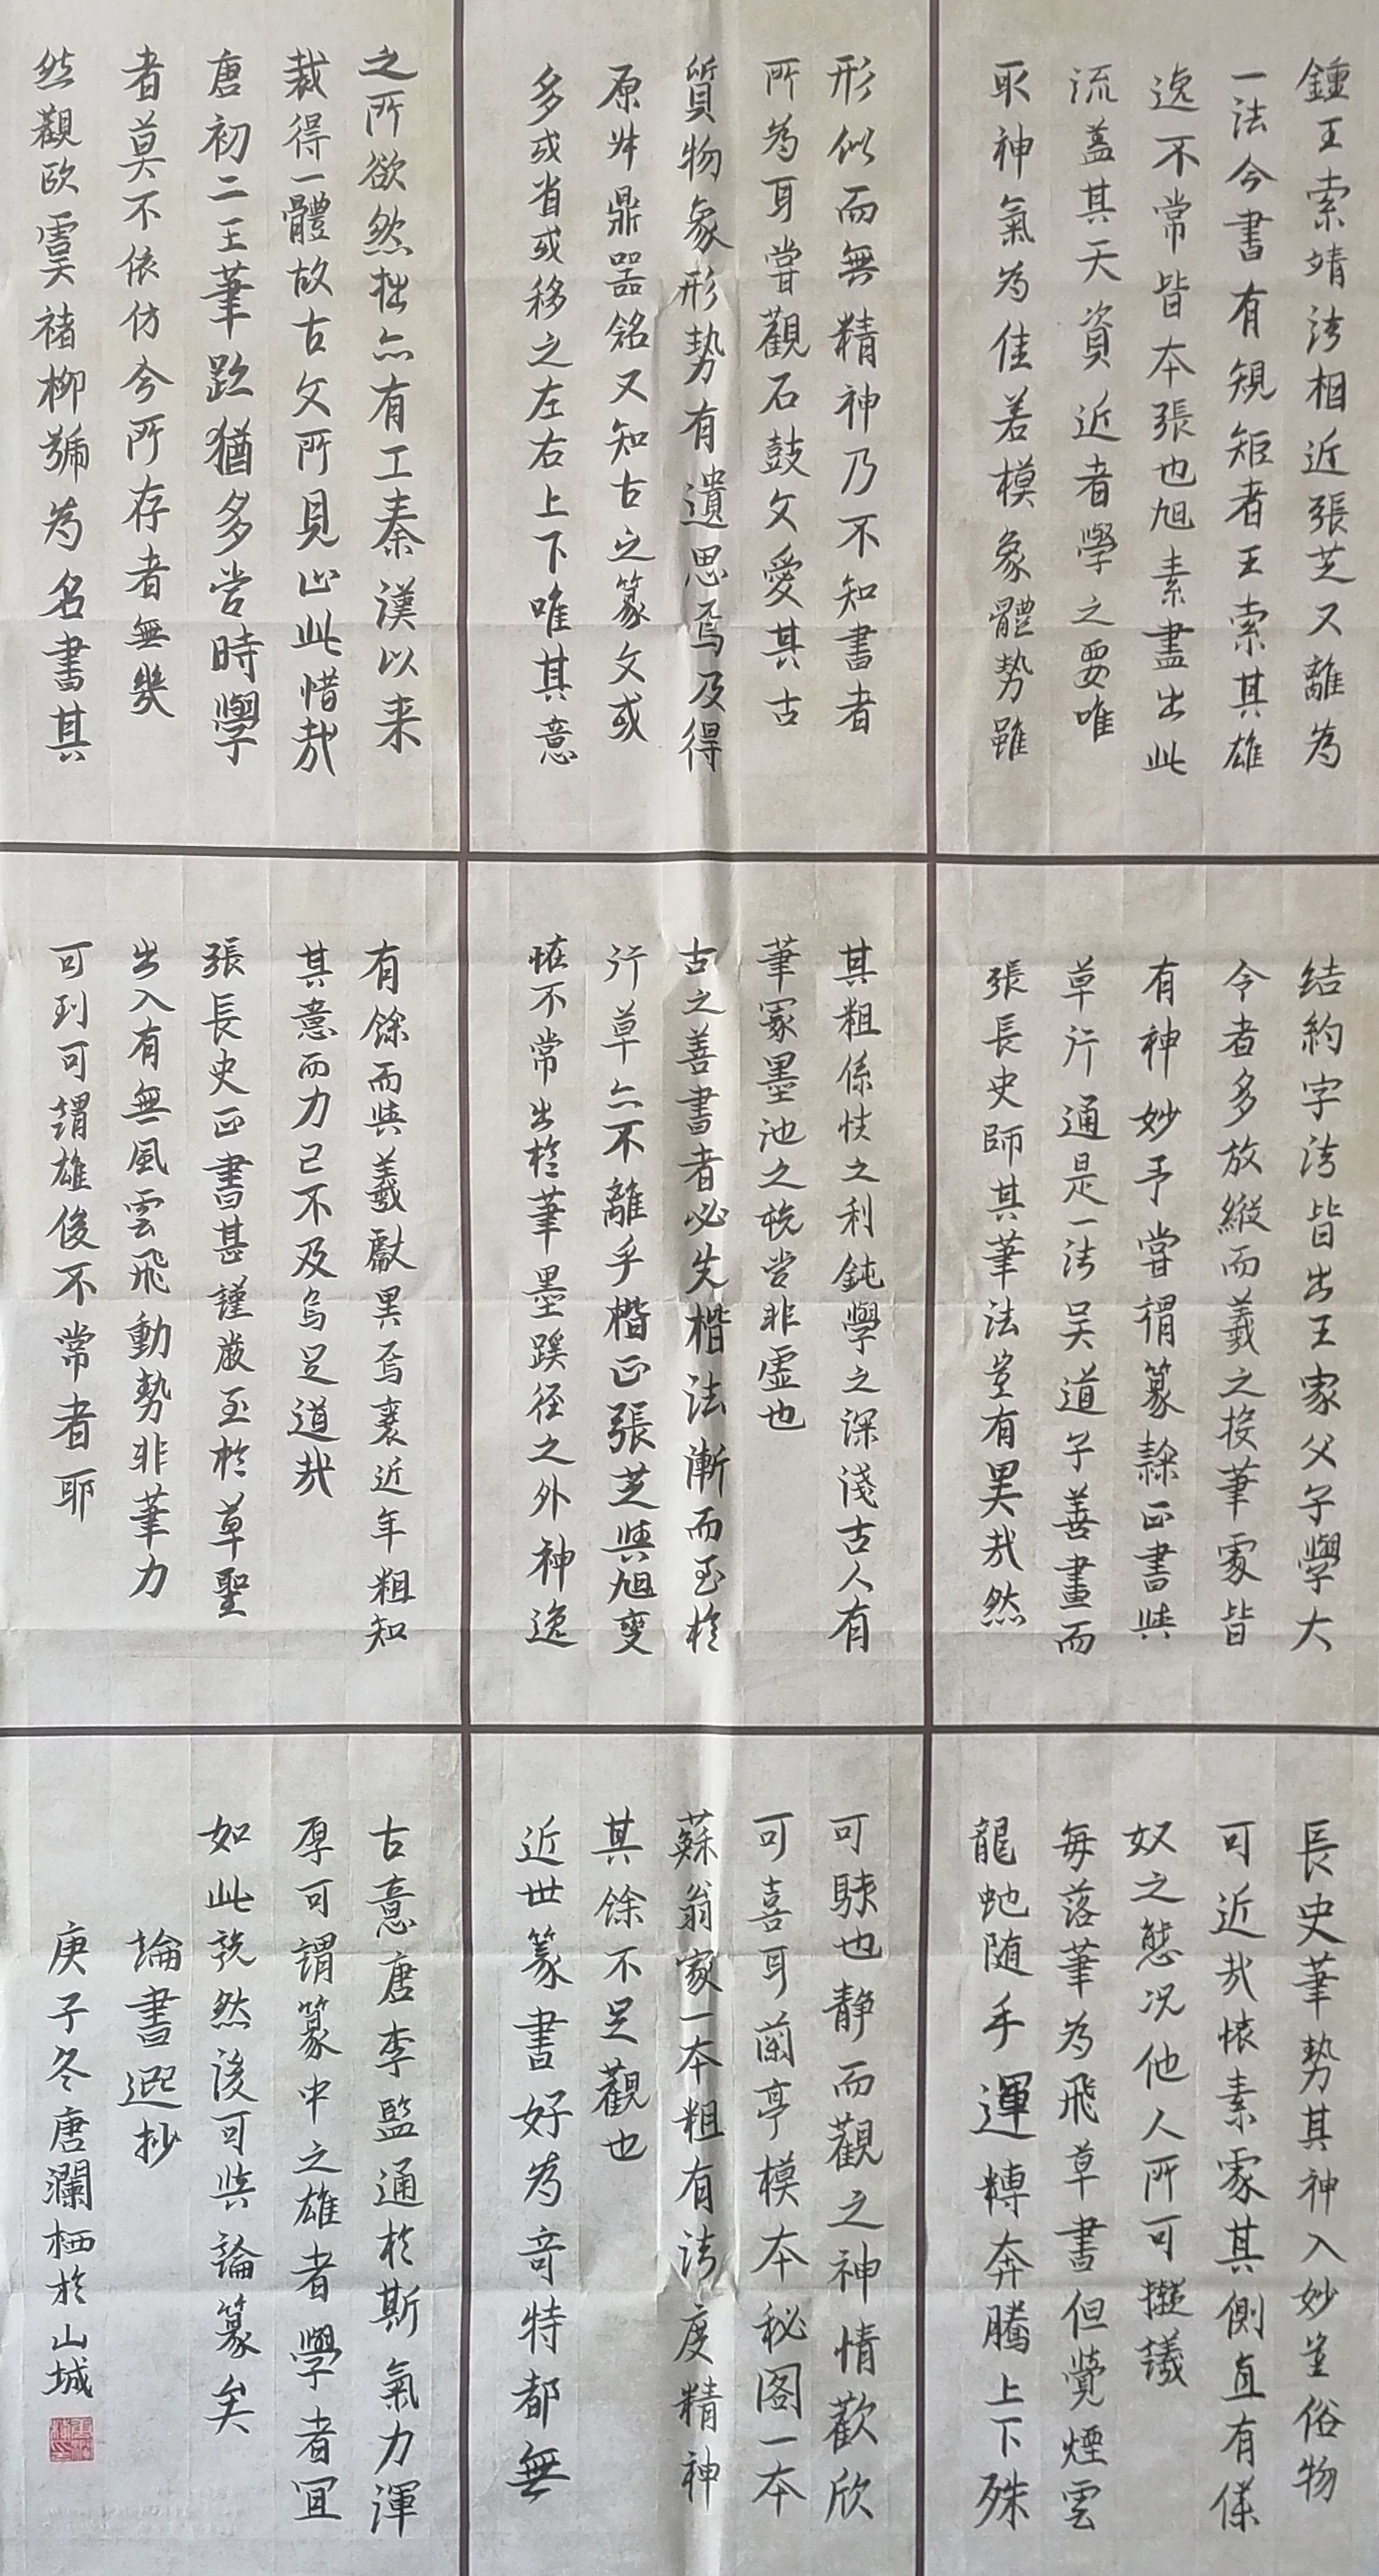 鍾王索靖法相近張芝又離為
一法今書有規矩者王索其雄
逸不常皆本張也旭素盡出此
流蓋其天資近者學之要唯
取神氣為佳若模象體勢雖
形似而無精神乃不知書者
所為耳嘗觀石鼓文愛其古
質物象形勢有遺思焉及得
原叔鼎器銘又知古之篆文或
多或省或移之左右上下唯其意
之所欲然拙亦有工秦漢以来
裁得一體故古文所見止此惜哉
唐初二王筆跡猶多當時學
者莫不依仿今所存者無幾
然觀歐虞褚柳號為名書其
結約字法皆出王家父子學大
令者多放縱而羲之投筆處皆
有神妙予嘗謂篆隸正書與
草行通是一法吳道子善畫而
張長史師其筆法豈有異哉然
其粗係性之利鈍學之深淺古人有
筆冢墨池之說當非虛也
古之善書者必先楷法漸而至於
行草亦不離乎楷正張芝與旭變
怪不常出於筆墨蹊径之外神逸
有餘而與羲獻異焉襄近年粗知
其意而力已不及烏足道哉
張長史正書甚謹嚴至於草聖
出入有無風雲飛動勢非筆力
可到可謂雄俊不常者耶
長史筆勢其神入妙豈俗物
可近哉懷素處其側直有僕
奴之態况他人所可擬議
每落筆為飛草書但覺煙雲
龍虵随手運轉奔騰上下殊
可駭也静而觀之神情歡欣
可喜耳蘭亭模本秘閣一本
蘇翁家一本粗有法度精神
其餘不足觀也
近世篆書好為奇特都無
古意唐李監通於斯氣力渾
厚可謂篆中之雄者學者宜
如此說然後可與論篆矣
論書選抄
庚子冬唐瀾栖於山城